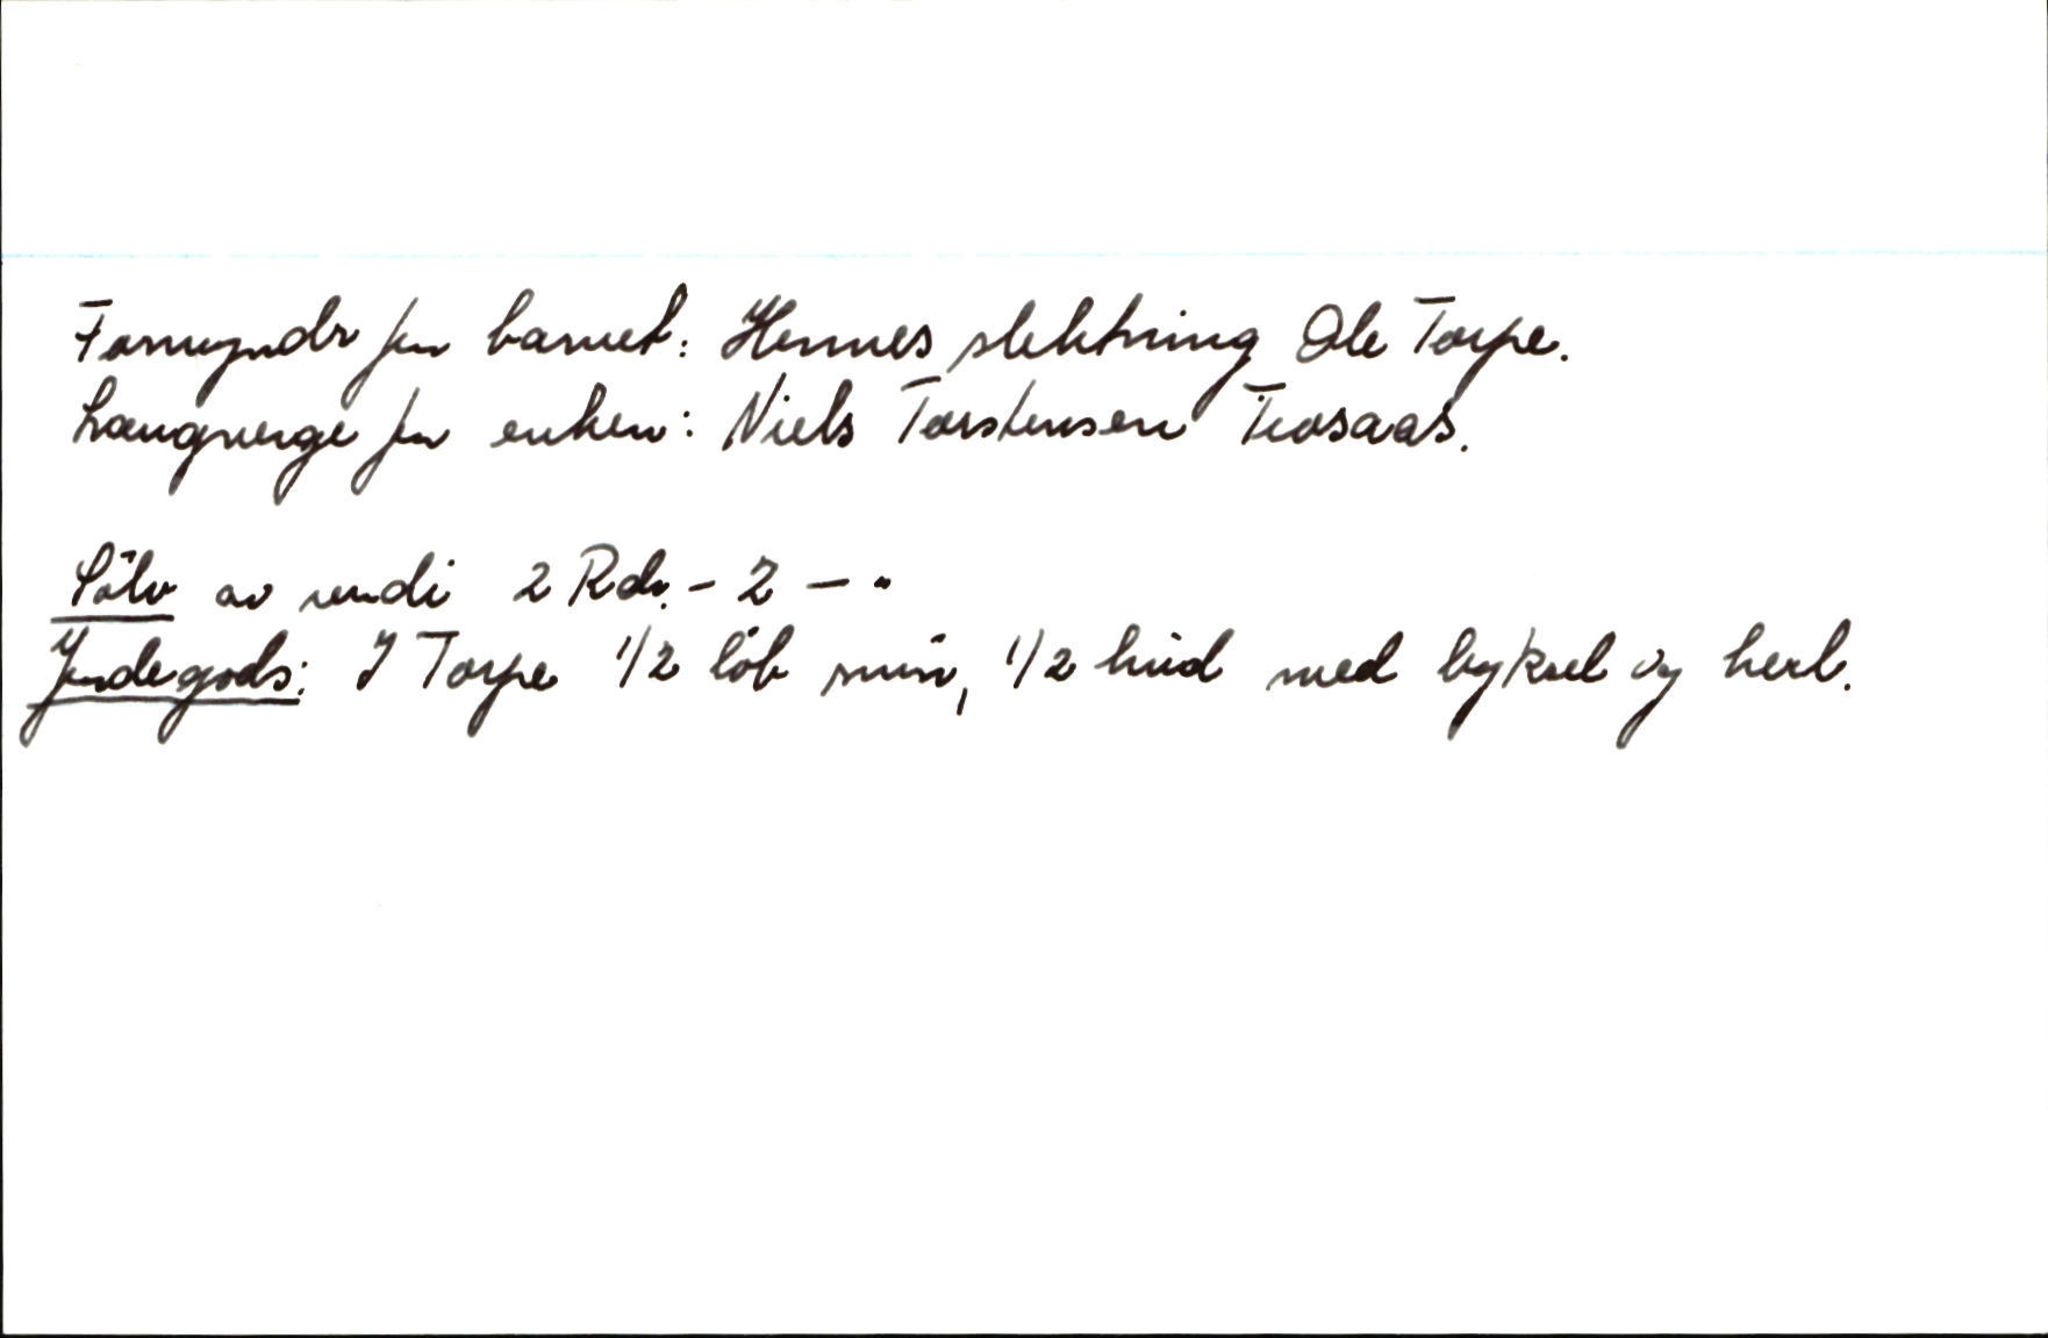 Formyndr for barnet: Hennes slektning Ole Torpe.
Laugverge for enken: Niels Torstensen Trosaas.
Sölv av verdi 2 Rdr. - 2 - "
Jordegods: I Torpe 1/2 löb smör, 1/2 hud med byksel og herl.